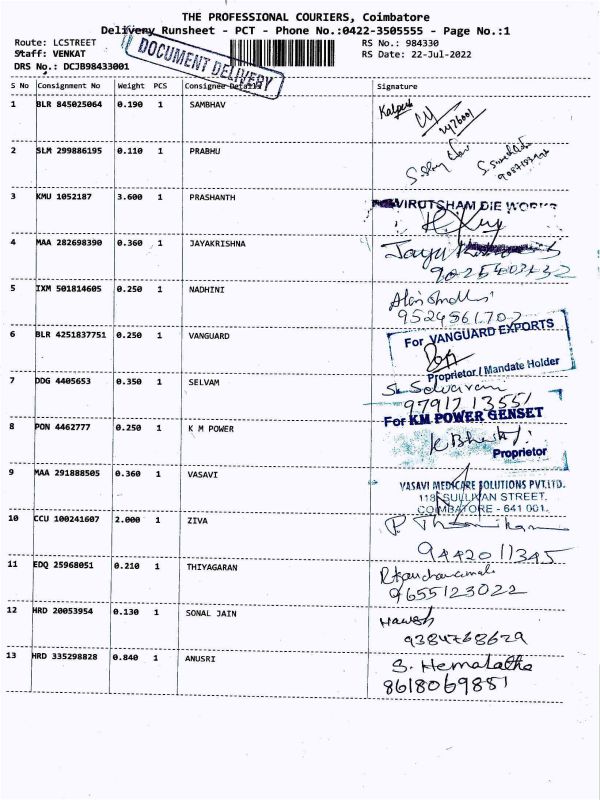 THE PROFESSIONAL COURIERS, Coimbatore
Delivery Runsheet - PCT - Phone No.:0422-3505555 - Page No.:1
Route: LCSTREET RS No.: 984330
Staff: VENKAT RS Date: 22-Jul-2022
DRS No.: DCJB98433001
DOCUMENT DELIVERY
S No Consignment No Weight PCS Consignee Details Signature
1 BLR 845025064 0.190 1 SAMBHAV
2 SLM 299886195 0.110 1 PRABHU
3 KMU 1052187 3.600 1 PRASHANTH VIRUTSHAM DIE WORKS
4 MAA 282698390 0.360 1 JAYAKRISHNA
9025403232
5 IXM 501814605 0.250 1 NADHINI
6 BLR 4251837751 0.250 1 VANGUARD For VANGUARD EXPORTS
Proprietor / Mandate Holder
7 DDG 4405653 0.350 1 SELVAM
9791713551
8 PON 4462777 0.250 1 K M POWER For KM POWER GENSET
Proprietor
9 MAA 291888505 0.360 1 VASAVI VASAVI MEDICARE SOLUTIONS PVT.LTD.
118, SULLIVAN STREET,
COIMBATORE - 641 001.
10 CCU 100241607 2.000 1 ZIVA
9442011345
11 EDQ 25968051 0.210 1 THIYAGARAN
9655123022
12 HRD 20053954 0.130 1 SONAL JAIN
9384768629
13 HRD 335298828 0.840 1 ANUSRI S. Hemalatha
8618069851